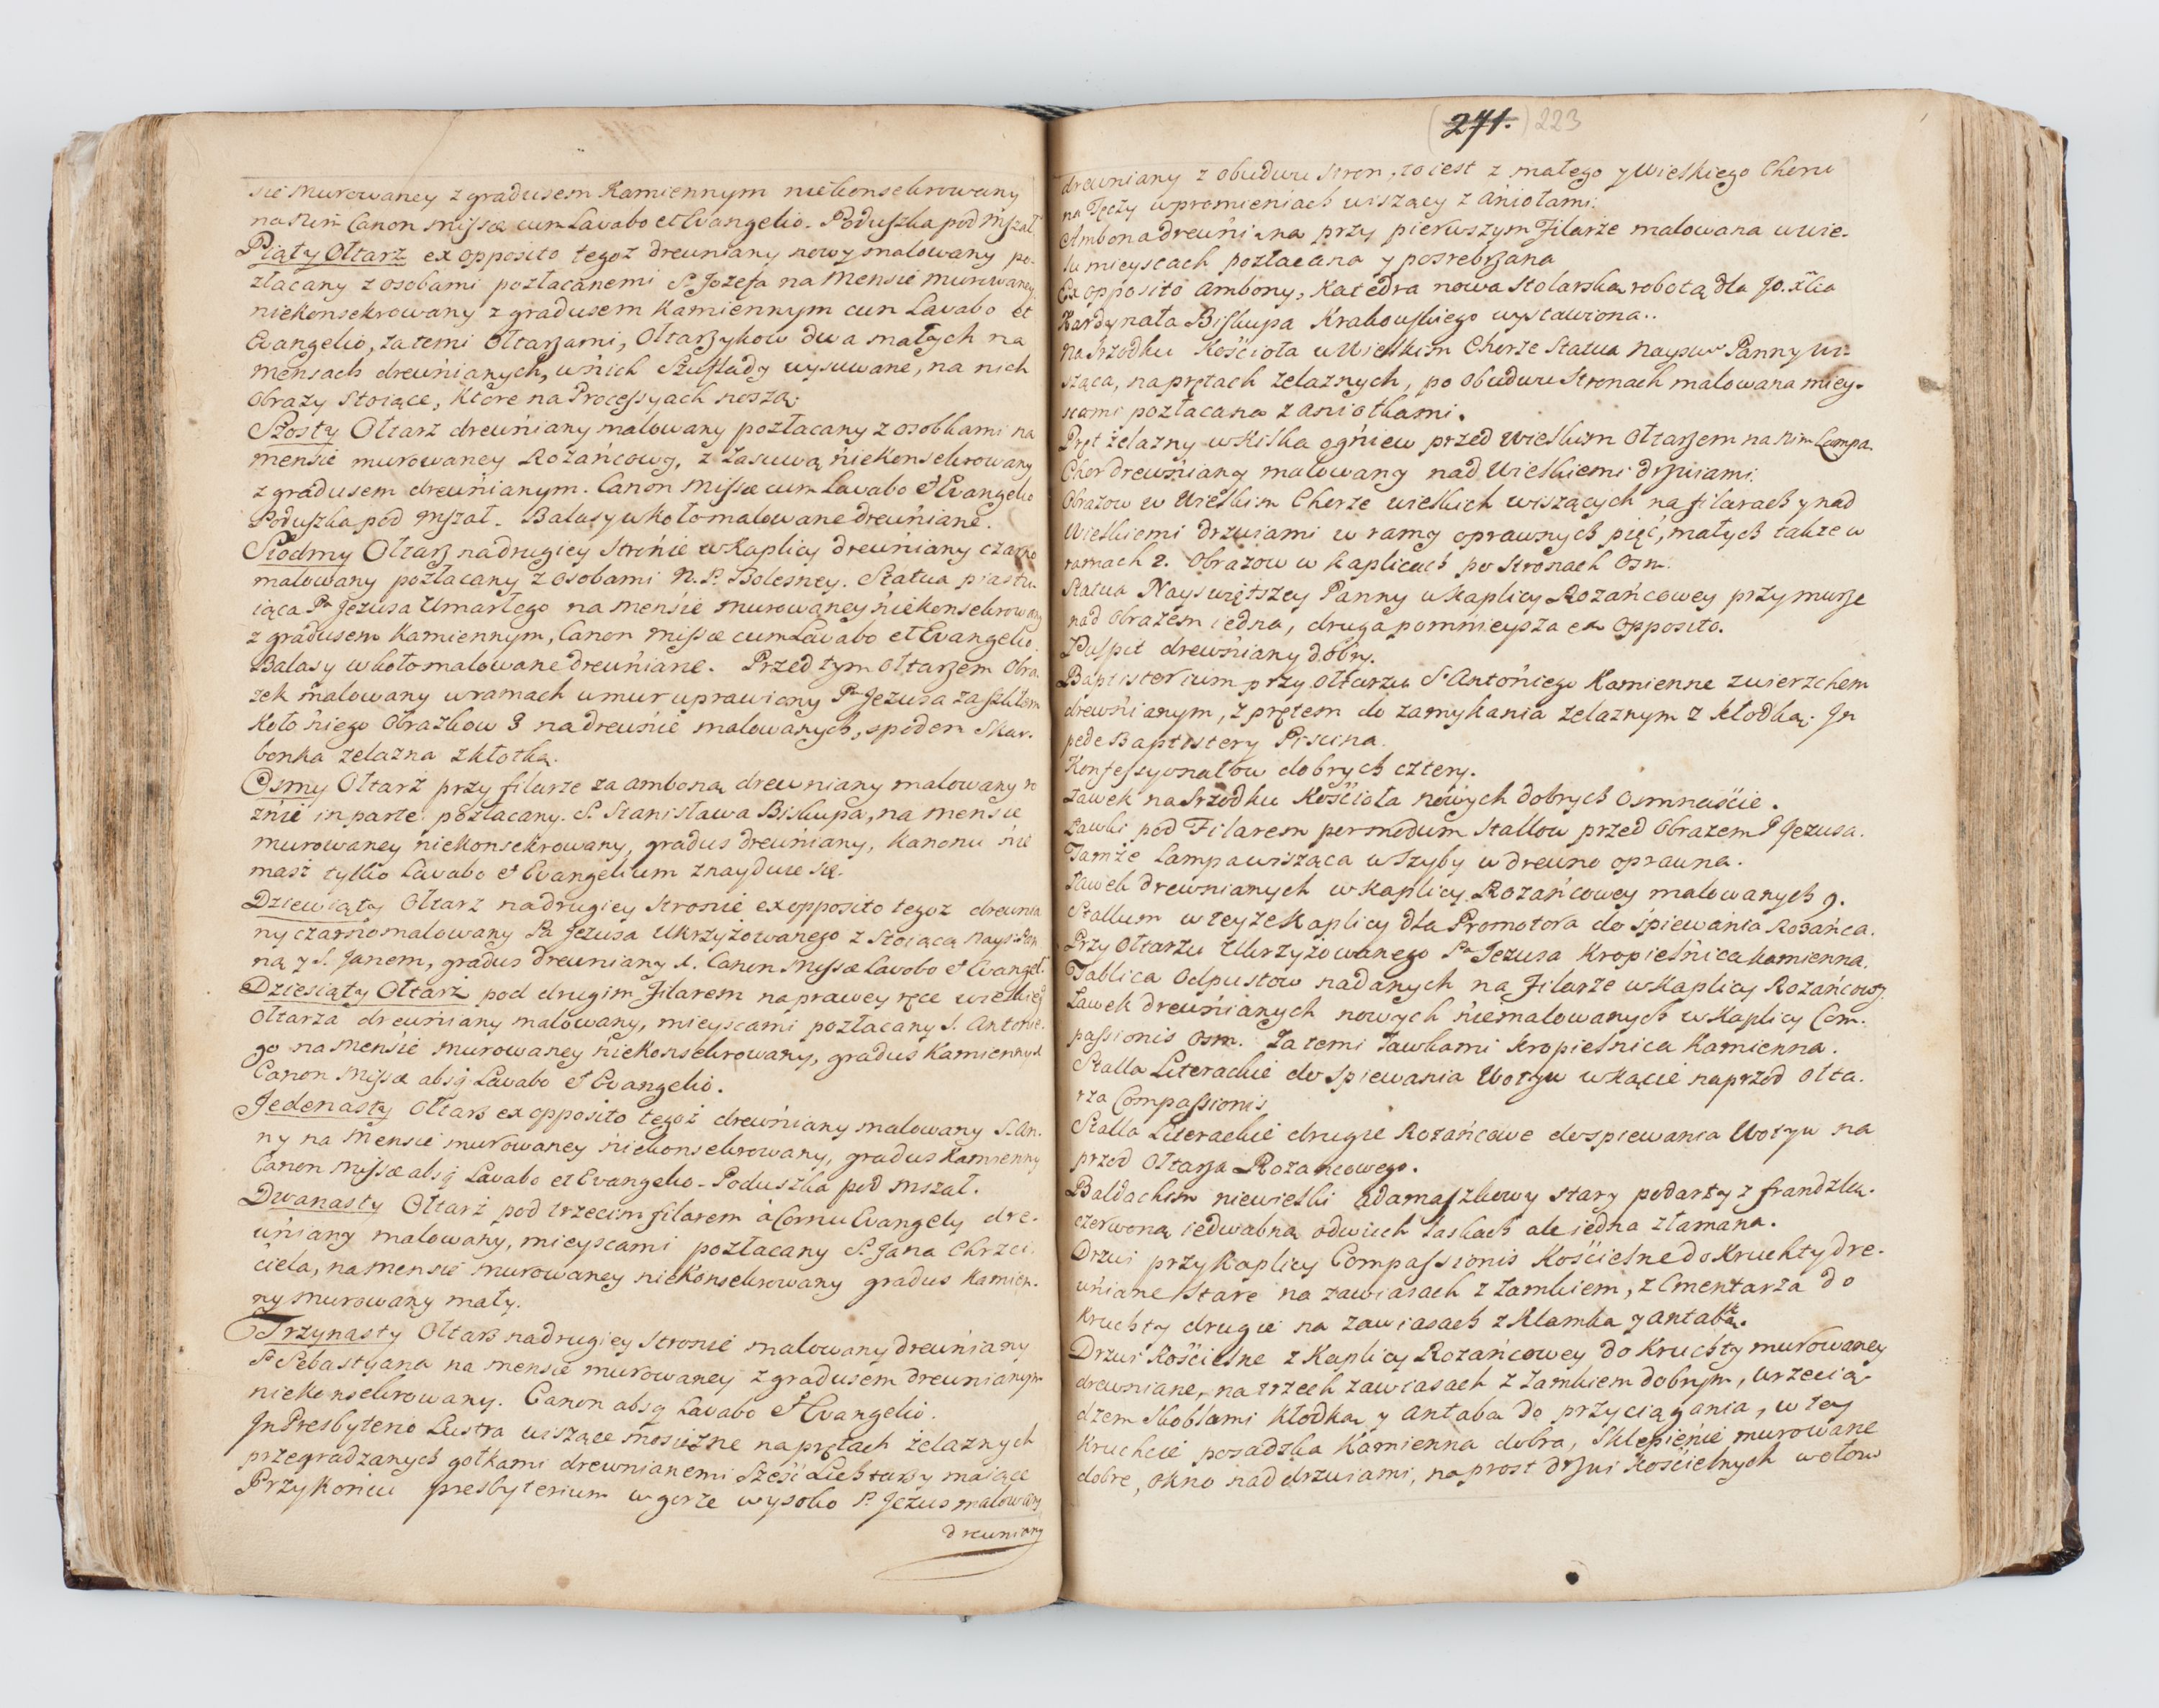 sie murowaney z gradusem Kamiennym niekonsekrowany
na nim Canon Missæ cum Lavabo et Evangelio. Poduszka pod Mszał
Piąty Ołtarz ex opposito tegoż drewniany nowy malowany po-
złacany z osobami pozłacanemi S. Jozefa na Mensie murowaney
niekonsekrowany z gradusem Kamiennym cum Lavabo et
Evangelio, za temi Ołtarzami, Ołtarzykow dwa małych na
Mensach drewnianych, w nich Szuflady wysuwane, na nich
Obrazy stoiące, Które na Processyach noszą.
Szosty Ołtarz drewniany malowany pozłacany z osobkami na
mensie murowaney Rożańcowy, z Zasuwą niekonsekrowany
z gradusem drewnianym. Canon Missæ cum Lavabo et Evangelio
Poduszka pod Mszał. Balasy wkoło malowane drewniane.
Siodmy Ołtarz na drugiey Stronie w Kaplicy drewniany czarno
malowany pozłacany z osobami N. P. Bolesney. Statua piastu-
iąca Pa Jezusa Umarłego na mensie murowaney niekonsekrowany
z gradusem Kamiennym, Canon Missæ cum Lavabo et Evangelio
Balasy wkoło malowane drewniane. Przed tym Ołtarzem Obra-
zek malowany w ramach w mur uprawiony Pa Jezusa za szkłem
Koło niego Obrazkow 3 na drewnie malowanych, spodem Skar-
bonka żelazna z kłotką.
Osmy Ołtarz przy filarze za amboną drewniany malowany ro
żnie in parte pozłacany. S. Stanisława Biskupa, na mensie
murowaney niekonsekrowany, gradus drewniany, Kanonu nie
masz tylko Lavabo et Evangelium znayduie się.
Dziewiąty Ołtarz na drugiey stronie ex opposito tegoż drewnia
ny czarno malowany Pa Jezusa Ukrzyżowanego z stoiącą Nays: Pan
ną y S. Janem, gradus drewniany. Canon Missæ Lavabo et Evangel.
Dziesiąty Ołtarz pod drugim Filarem na prawey ręce wielkieg
Ołtarza drewniany malowany, mieyscami pozłacany S. Antonie-
go na Mensie murowaney niekonsekrowany, gradus Kamienny
Canon Missæ absq Lavabo et Evangelio.
Jedenasty Ołtarz ex opposito tegoż drewniany malowany S. An-
ny na Mensie murowaney niekonsekrowany, gradus Kamienny
Canon Missæ absq Lavabo et Evangelio. Poduszka pod Mszał.
Dwanasty Ołtarz pod trzecim filarem a Cornu Evangely dre-
wniany malowany, mieyscami pozłacany S. Jana Chrzci-
ciela, na mensie murowaney niekonsekrowany gradus Kamien-
ny murowany mały.
Trzynasty Ołtarz na drugiey stronie malowany drewniany
S. Sebastyana na mensie murowaney z gradusem drewnianym
niekonsekrowany. Canon absq Lavabo et Evangelio.
In Presbyterio Lustra wiszące mosiężne na prętach żelaznych
przegradzanych gołkami drewnianemi sześć Lichtarzy maiące
Przy Końcu presbyterium w gorze wysoko P. Jezus malowany
drewniany
271. (223
drewniany z obudwu stron, to iest z małego y wielkiego Choru
na Tęczy w promieniach wiszący z Aniołami.
Ambona drewniana przy pierwszym Filarze malowana w wie-
lu mieyscach pozłacana y posrebrzana
Ex opposito Ambony, Katedra nowa Stolarską robotą dla Jo. Xcia
Kardynała Biskupa Krakowskiego wystawiona..
Na Srzodku Kościoła w Wielkim Chorze Statua Nayswr Panny wi-
sząca, na prętach żelaznych, po obudwu stronach malowana miey-
scami pozłacana z aniołkami.
Pręt żelazny w Kilka ogniew przed wielkim Ołtarzem na nim Lampa.
Chor drewniany malowany nad wielkiemi drzwiami.
Obrazow w Wielkim Chorze wielkich wiszących na filarach y nad
Wielkiemi drzwiami w ramy oprawnych pięć, małych także w
ramach 2. Obrazow w kaplicach po stronach Osm.
Statua Nayswiętszey Panny w Kaplicy Rożańcowey przy murze
nad obrazem iedna, druga pomnieysza ex Opposito.
Pulpit drewniany dobry.
Baptisterium przy ołtarzu S. Antoniego Kamienne z wierzchem
drewnianym, z prętem do zamykania żelaznym z kłodką. In
pede Baptistery Piscina.
Konfessyonałow dobrych cztery.
Ławek na srzodku Kościoła nowych dobrych osmnaście.
Ławki pod Filarem per modum Stallow przed Obrazem P Jezusa.
Tamże Lampa wisząca w szyby w drewno oprawna.
Ławek drewnianych w Kaplicy Rożańcowey malowanych 9.
Stallum w teyże Kaplicy dla Promotora do śpiewania Rożańca.
Przy Ołtarzu Ukrzyżowanego Pa Jezusa Kropielnica kamienna.
Tablica Odpustow nadanych na Filarze w Kaplicy Rożańcowy.
Ławek drewnianych nowych niemalowanych w Kaplicy Com-
passionis Osm. Za temi Ławkami kropielnica Kamienna.
Stalla Literackie do spiewania Wotyw w kącie naprzod Ołta-
rza Compassionis
Stalla Literackie drugie Rożańcowe do spiewania Wotyw na
przod Ołtarza Rożancowego.
Baldachim niewielki adamaszkowy stary podarty z frandzlą
czerwoną iedwabną o dwuch laskach ale iedna złamana.
Drzwi przy Kaplicy Compassionis Kościelne do Kruchty dre-
wniane stare na zawiasach z Zamkiem, z Cmentarza do
Kruchty drugie na zawiasach z Klamką y antabą.
Drzwi Kościelne z Kaplicy Rożańcowey do Kruchty murowaney
drewniane, na trzech zawiasach z Zamkiem dobrym, wrzecią-
dzem skoblami Kłodką y Antaba do przyciągania, w tey
Kruchcie posadzka Kamienna dobra, Sklepienie murowane
dobre, okno nad drzwiami, naprost drzwi Kościelnych w ołow